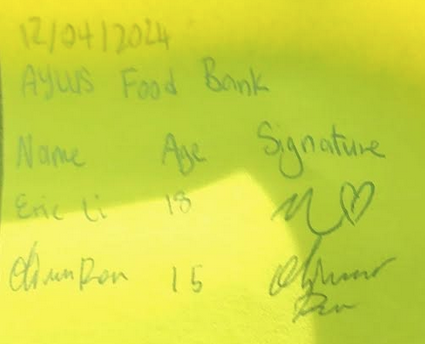 12/04/2024
AYWS Food Bank
Name Age Signature
Eric Li 18
15